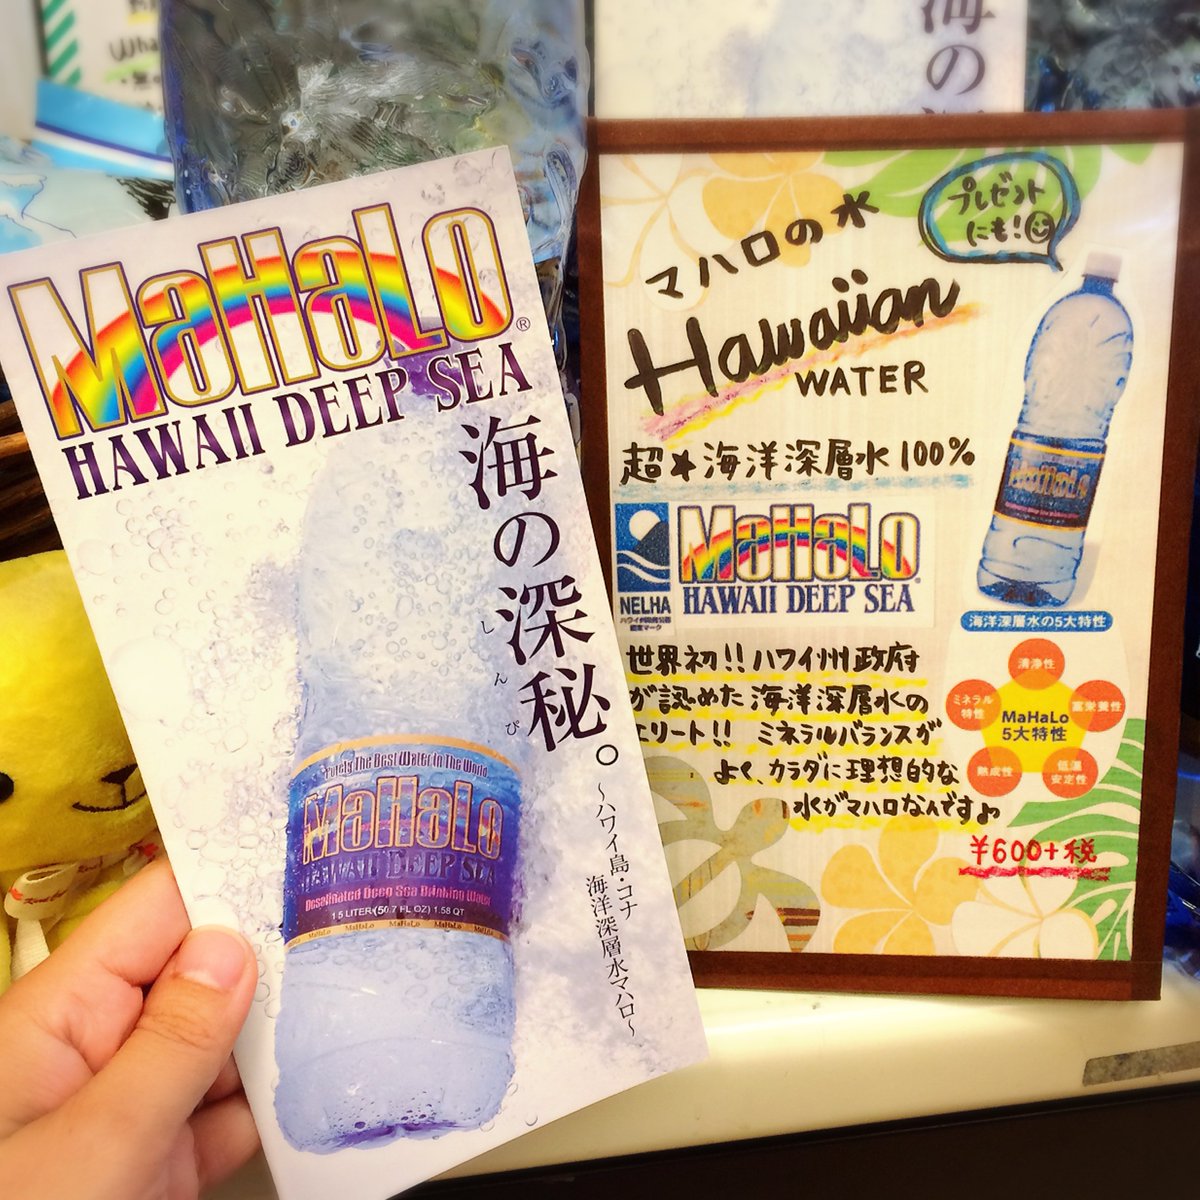 MaHaLo®
HAWAII DEEP SEA
海の深秘。
しんぴ
～ハワイ島・コナ
海洋深層水マハロ～
Purely The Best Water in The World
MaHaLo
HAWAII DEEP SEA
Desalinated Deep Sea Drinking Water
1.5 LITER (50.7 FL OZ) 1.58 QT
MaHaLo MaHaLo MaHaLo MaHaLo
海の
プレゼント
にも!
マハロの水
Hawaiian
WATER
超★海洋深層水100%
MaHaLo
NELHA
MaHaLo®
HAWAII DEEP SEA
海洋深層水の5大特性
清浄性
ミネラル
特性
富栄養性
MaHaLo
5大特性
熟成性
低温
安定性
世界初!! ハワイ州政府
が認めた海洋深層水の
エリート!! ミネラルバランスが
よく、カラダに理想的な
水がマハロなんです♪
¥600+税